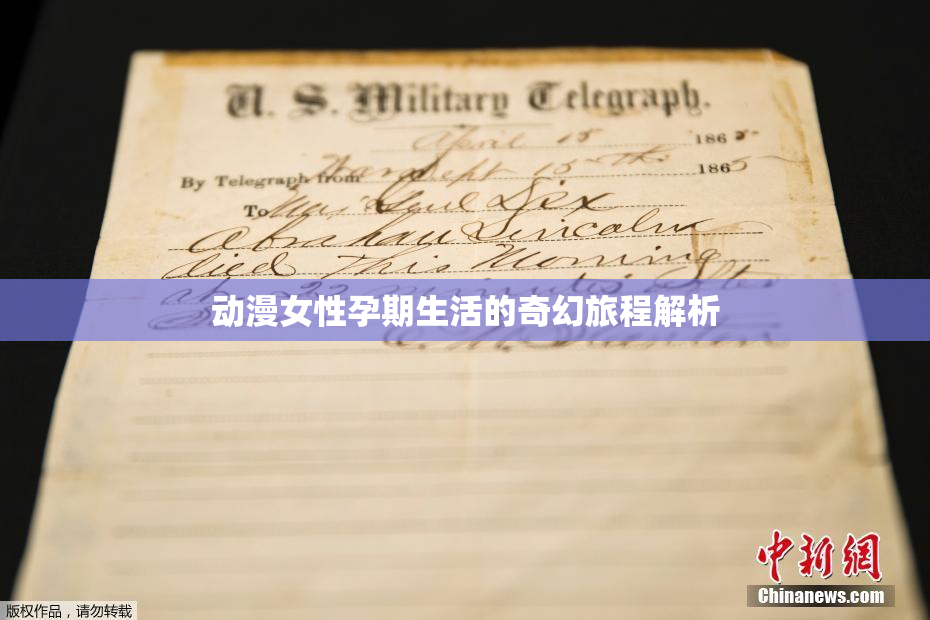 U. S. Military Telegraph.
April 15 1865
By Telegraph from War Dept 15th 1865
To Maj Genl Dix
Abraham Lincoln
died This Morning
at 22 minutes after
动漫女性孕期生活的奇幻旅程解析
E. M. Stanton
中新网
Chinanews.com
版权作品，请勿转载